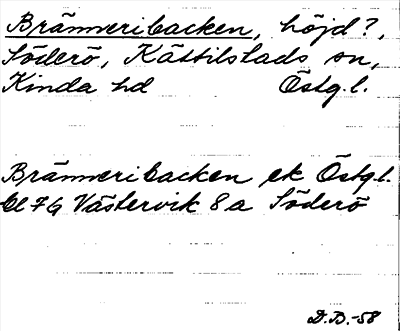 Brännveribacken, höjd?,
Söderö, Kättilstads sn,
Kinda hd Östg.l.
Bränneribacken ek Östg.l.
bl 76 Västervik 8 a Söderö
D.B.-58